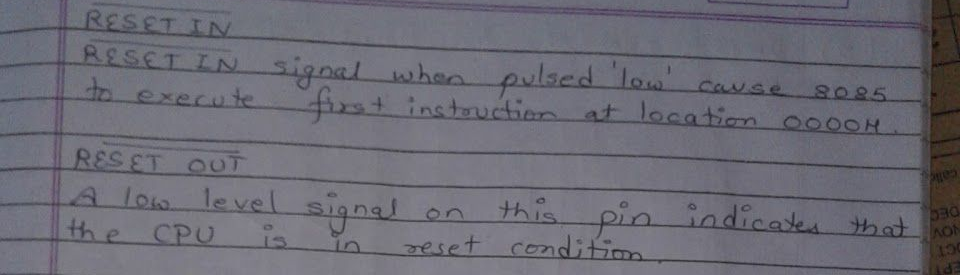 RESET IN
RESET IN signal when pulsed 'low' cause 8085
to execute first instruction at location 0000H.
RESET OUT
A low level signal on this pin indicates that
the CPU is in reset condition.